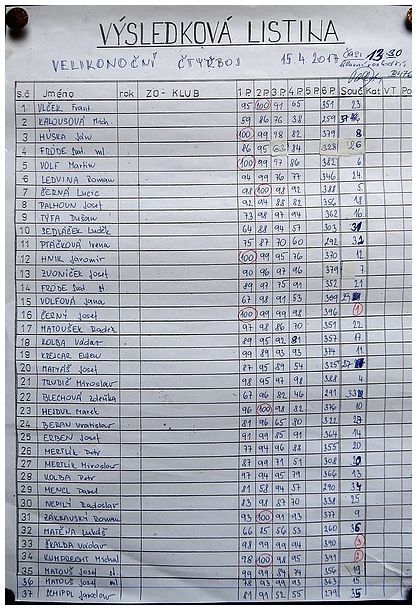 VÝSLEDKOVÁ LISTINA
VELIKONOČNÍ ČTYŘBOJ 15.4.2017 13-30
S.č Jméno rok ZO - KLUB 1 P. 2 P. 3 P. 4 P. 5 P. 6 P. Souč Kat VT Po
1 VLČEK Frant. 95 100 91 65 351 23
2 KALOUSOVÁ Mich. 59 86 76 38 259
3 HUSKA Jan 100 99 98 82 379 8
4 FRÖDE Jar. ml. 86 95 63 84 328 26
5 VOLF Martin 100 99 97 86 382 6
6 LEDVINA Roman 94 99 76 77 346 24
7 ČERNÝ Lucie 98 100 98 92 388 5
8 PALHOUN Josef 92 94 88 82 356 18
9 TÝFA Dušan 73 98 97 94 362 16
10 SEDLÁČEK Luděk 64 88 94 57 303
11 PTÁČKOVÁ Irena 75 87 70 60 292
12 HNIK Jaromír 100 99 95 76 370 12
13 ZVONÍČEK Josef 90 96 97 96 379 7
14 FRÖDE Jar. st. 89 97 75 91 352 21
15 VOLFOVÁ Jana 67 98 91 53 309
16 ČERNÝ Josef 100 99 99 98 396 1
17 MATOUŠEK Radek 97 98 86 70 351 22
18 KOLBA Václav 89 95 92 81 357 17
19 KREJCAR Evžen 99 89 93 93 374 11
20 MATYÁŠ Josef 87 95 89 54 325
21 TRUDIČ Miroslav 98 95 97 98 388 4
22 BLECHOVÁ Zdeňka 67 96 82 46 291
23 HEJDUK Marek 96 100 98 82 376 10
24 BERAN Vratislav 81 96 65 80 322
25 ERBEN Josef 91 99 85 91 364 14
26 MERTLÍK Petr 77 94 96 88 355 20
27 MERTLÍK Miroslav 87 99 71 51 308
28 KOLBA Petr 97 94 95 79 366 13
29 MENCL Pavel 81 58 94 57 290
30 NEPILÝ Radoslav 83 98 87 70 338 25
31 ZAKRAVSKÝ Roman 93 100 91 93 377 9
32 MATĚNA Lukáš 66 85 56 53 260
33 ŠKALDA Václav 98 99 99 94 390 3
34 KUMPRECHT Michal 98 100 98 95 391 2
35 MATOUŠ Josef st 99 99 84 74 356 19
36 MATOUŠ Josef ml 78 93 99 93 363 15
37 Jaroslav 81 91 52 55 279